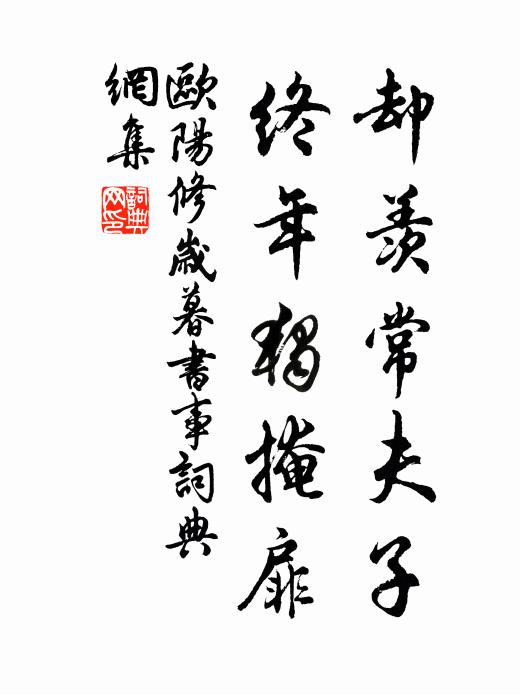 却羨常夫子
終年獨掩扉
歐陽修歲暮書事詞典
網集
詞典
网印